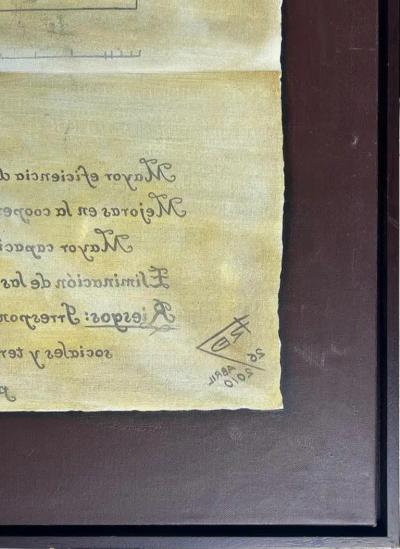 Mayor eficiencia d
Mejoras en la cooper
Mayor capaci
Eliminación de las
Riesgos: Irrespon
sociales y ter
P
26
ABRIL
2010